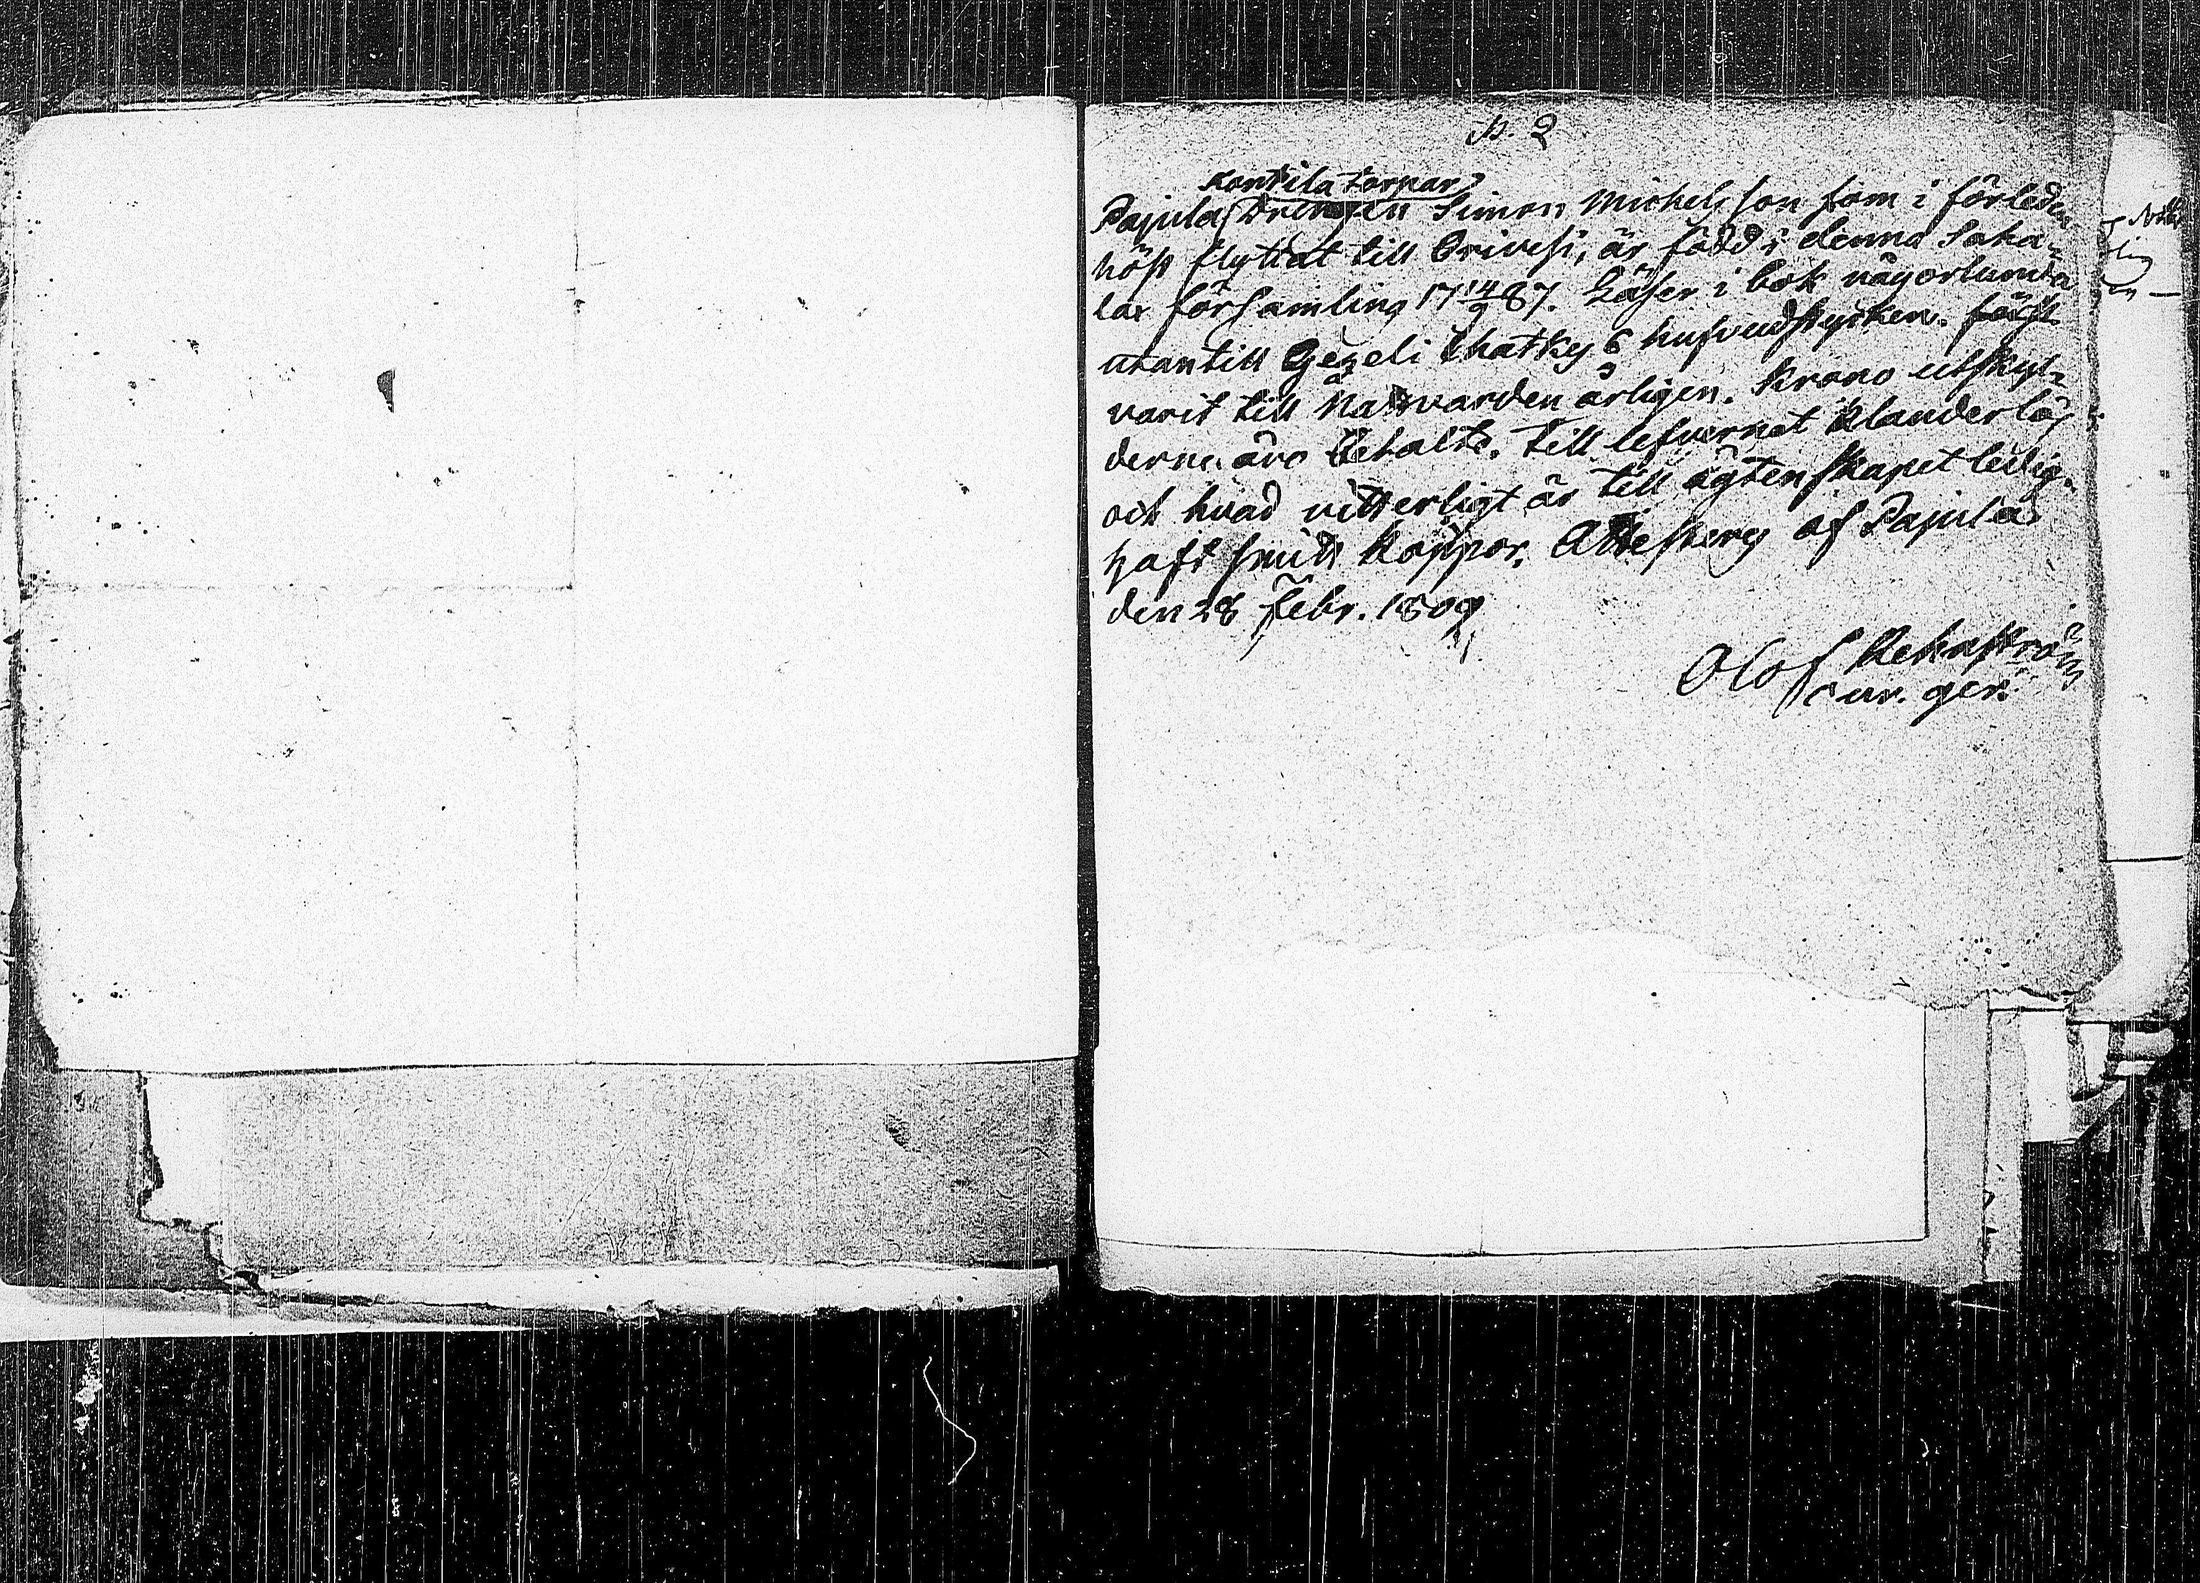 N. 2
Kontila torpar
Pajula Drengen Simon Michelsson som i förleden
höst flyttat till Orivesi, är född i denna Saha-
lax församling 17 14/9 87. Läser i bok någorlunda
utantill Gezeli Chatky 6 hufvudstycken.
varit till Nattvarden årligen. Krono utskyl-
derne äro betalte. Till lefvernet klanderlös
och hvad vitterligt är till ägtenskapet ledig.
haft smitt koppor. Attesterej af Pajula
den 28 Febr. 1809
Olof
cur. ger.